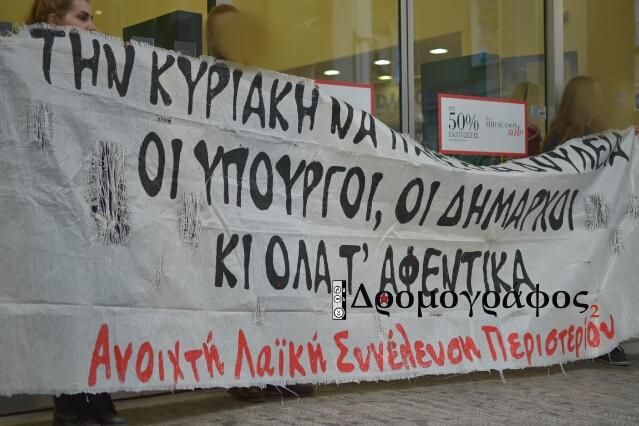 ΤΗΝ ΚΥΡΙΑΚΗ ΝΑ ΔΟΥΛΕΙΑ
ΟΙ ΥΠΟΥΡΓΟΙ, ΟΙ ΔΗΜΑΡΧΟΙ
ΚΙ ΟΛΑ Τ' ΑΦΕΝΤΙΚΑ
Ανοιχτή Λαϊκή Συνέλευση Περιστερίου
Δρομογράφος 2
50%
ΕΚΠΤΩΣΕΙΣ
MID SEASON
sale